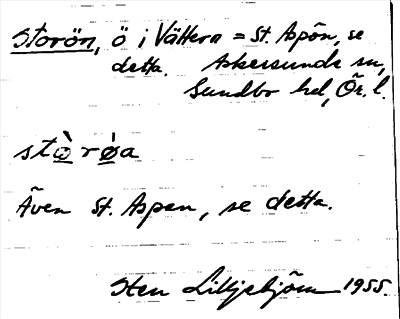 Storön, ö i Vättern = St. Aspön, se
detta. Askersunds sn,
Sundbo hd, Ör. l.
stò̱rǿ̱a
Även St. Aspan, se detta.
Sten Liljebjörn 1955.